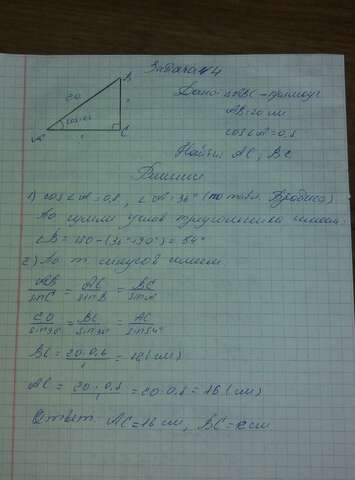 Задача №4
Дано: △ABC - прямоуг
AB = 20 см
cos∠A = 0,8
Найти: AC, BC
B
20
cos=0.8
C
Решение
1) cos∠A = 0,8, ∠A = 36° (по табл. Брадиса)
По сумме углов треугольника имеем:
∠B = 180 - (36°+90°) = 54°
2) По т. синусов имеем
AB/sinC = AC/sinB = BC/sinA
20/sin90° = BC/sin36° = AC/sin54°
BC = 20·0,6/1 = 12 (см)
AC = 20·0,8/1 = 20·0,8 = 16 (см)
Ответ: AC = 16 см, BC = 12 см